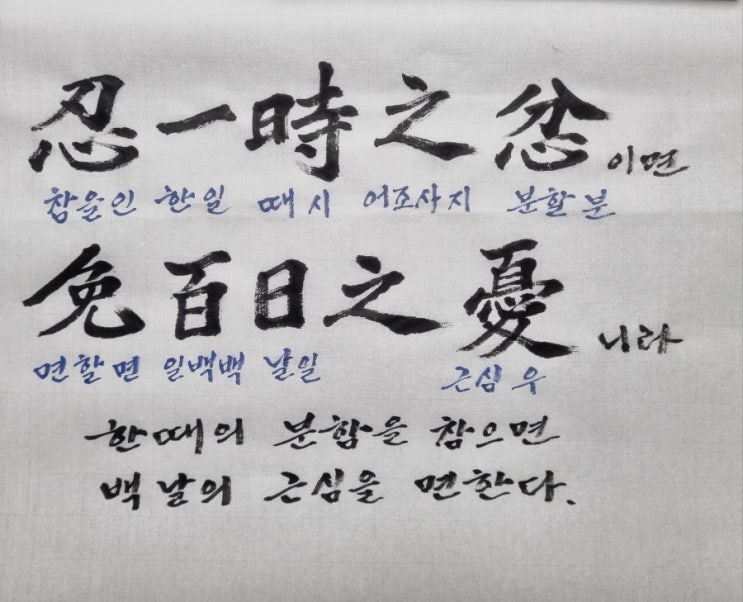 忍一時之忿이면
참을인 한일 때시 어조사지 분할분
免百日之憂니라
면할면 일백백 날일 근심우
한때의 분함을 참으면
백날의 근심을 면한다.